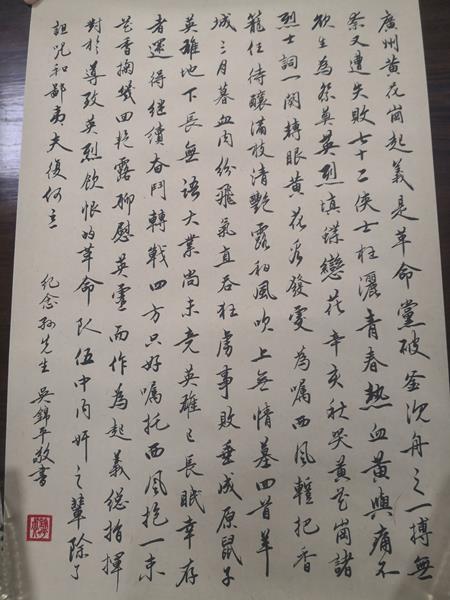 廣州黄花崗起義是革命黨破釜沉舟之一搏無
奈又遭失敗七十二俠士枉灑青春熱血黄興痛不
欲生為祭奠英烈填蝶戀花辛亥秋哭黄花崗諸
烈士詞一闋轉眼黄花看發處為嘱西風輕把香
籠住待釀滿枝清艷露和風吹上無情墓回首羊
城三月暮血肉纷飛氣直吞狂虜事敗垂成原鼠子
英雄地下長無語大業尚未竟英雄已長眠幸存
者還得继續奋鬥轉戰四方只好嘱托西風抱一束
花香掬幾回艳露聊慰英靈而作為起義總指揮
對於導致英烈飲恨的革命队伍中内奸之輩除了
詛咒和鄙夷夫復何言
纪念孙先生 吴錦平敬書